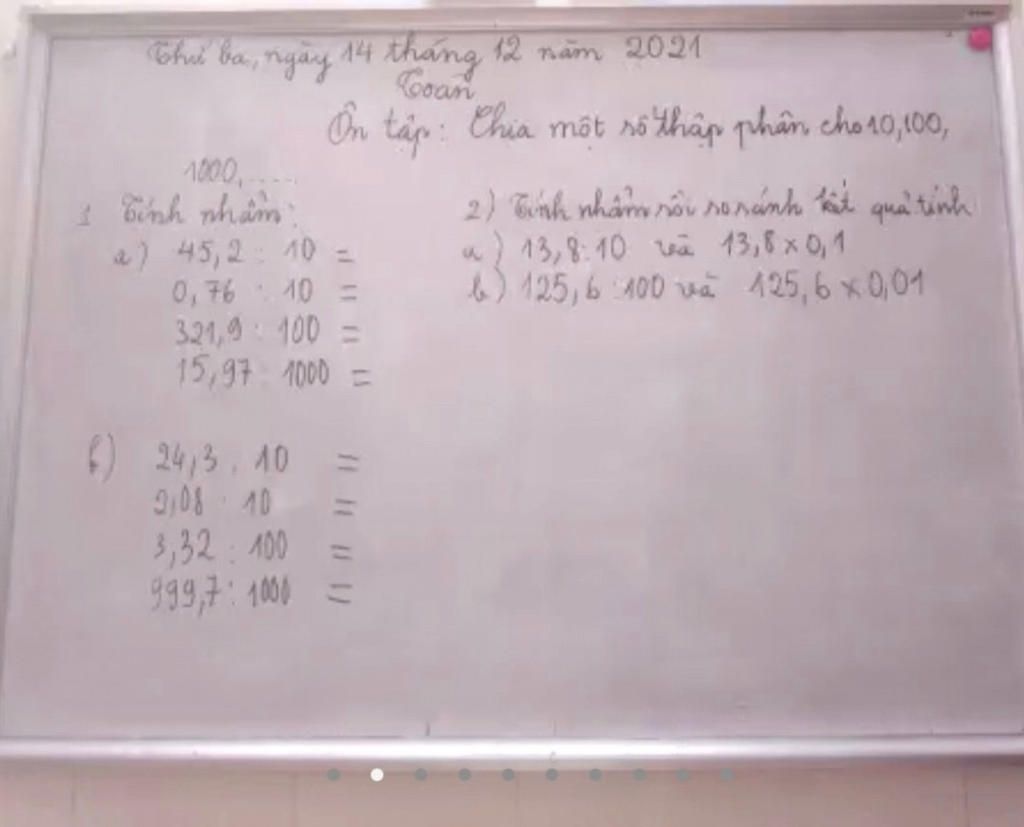 Thứ ba, ngày 14 tháng 12 năm 2021
Toán
Ôn tập: Chia một số thập phân cho 10, 100,
1000, .....
1 Tính nhẩm:
a) 45,2 : 10 =
0,76 : 10 =
321,9 : 100 =
15,97 : 1000 =
b) 24,3 : 10 =
2,08 : 10 =
3,32 : 100 =
999,7 : 1000 =
2) Tính nhẩm rồi so sánh kết quả tính
a) 13,8 : 10 và 13,8 x 0,1
b) 125,6 : 100 và 125,6 x 0,01